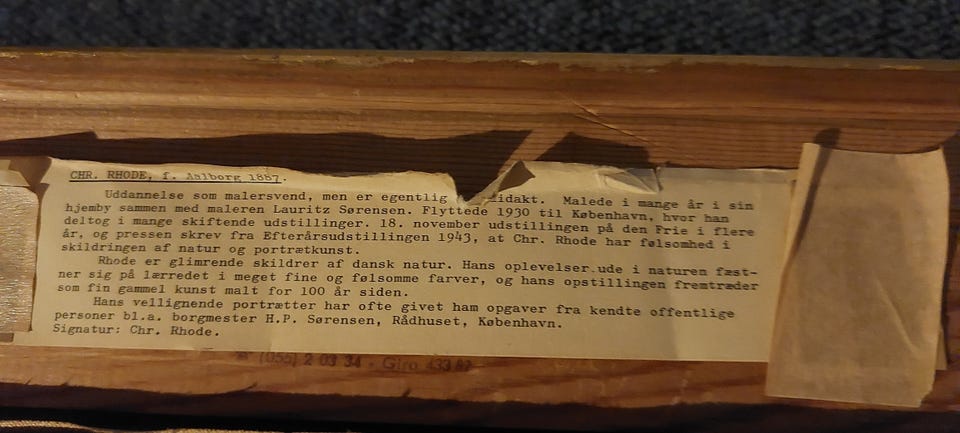 CHR. RHODE, f. Aalborg 1887.
Uddannelse som malersvend, men er egentlig idakt. Malede i mange år i sin
hjemby sammen med maleren Lauritz Sørensen. Flyttede 1930 til København, hvor han
deltog i mange skiftende udstillinger. 18. november udstillingen på den Frie i flere
år, og pressen skrev fra Efterårsudstillingen 1943, at Chr. Rhode har følsomhed i
skildringen af natur og portrætkunst.
Rhode er glimrende skildrer af dansk natur. Hans oplevelser ude i naturen fæst-
ner sig på lærredet i meget fine og følsomme farver, og hans opstillingen fremtræder
som fin gammel kunst malt for 100 år siden.
Hans vellignende portrætter har ofte givet ham opgaver fra kendte offentlige
personer bl.a. borgmester H.P. Sørensen, Rådhuset, København.
Signatur: Chr. Rhode.
(055) 2 03 34 - Giro 433 87